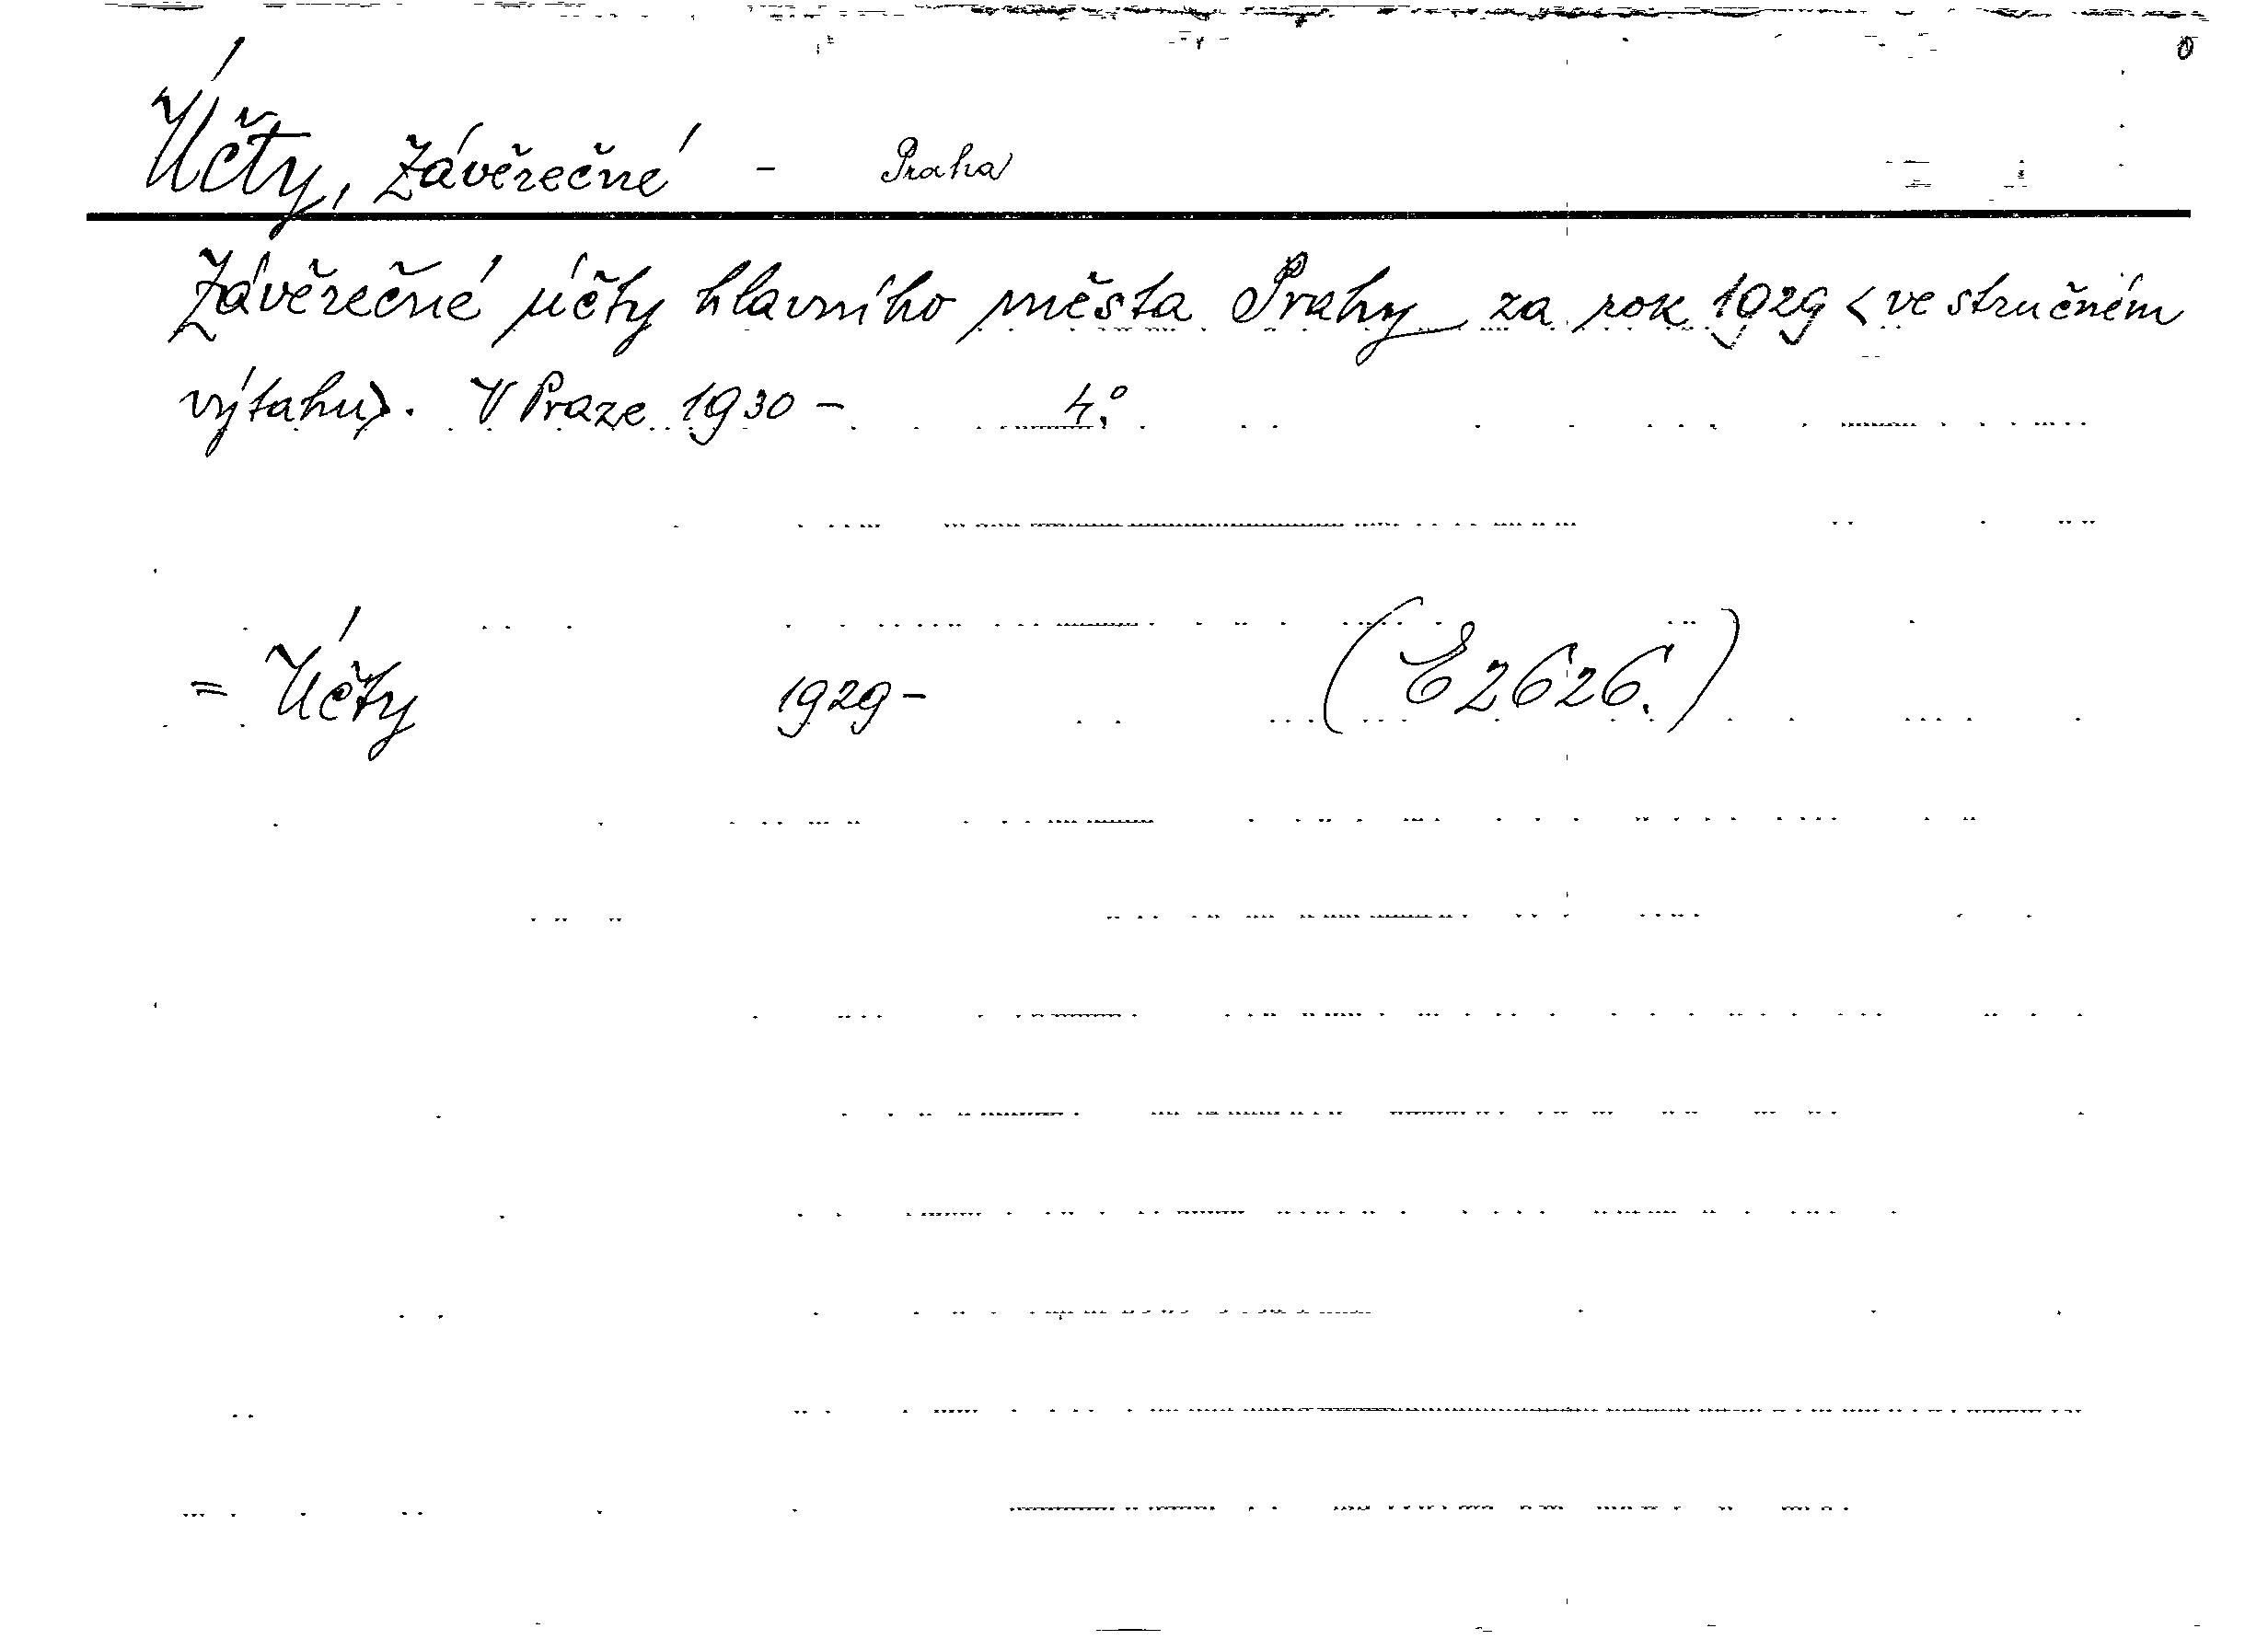 Účty, závěrečné - Praha
Závěrečné účty hlavního města Prahy za rok 1929 <ve stručném
výtahu>. V Praze 1930 - 4.°
= Účty 1929 - (E 2626.)